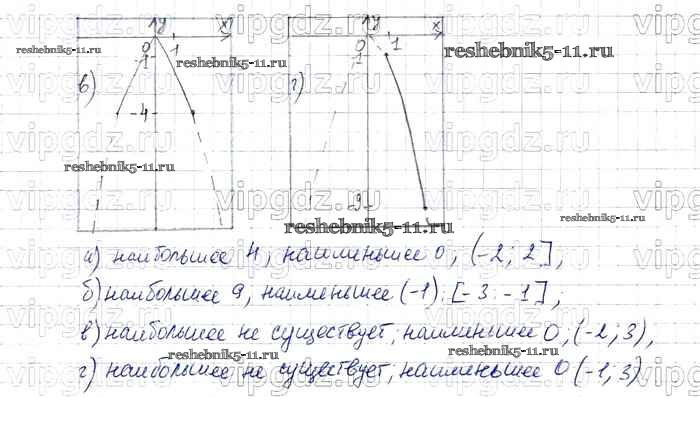 y x y x
0 1 0 1
-1 -1
в) г)
-4
-9
а) наибольшее 4, наименьшее 0, (-2; 2],
б) наибольшее 9, наименьшее (-1): [-3 -1];
в) наибольшее не существует, наименьшее 0, (-2; 3),
г) наибольшее не существует, наименьшее 0 (-1; 3)
vipgdz.ru
reshebnik5-11.ru
reshebnik5-11.ru
reshebnik5-11.ru
reshebnik5-11.ru
reshebnik5-11.ru
reshebnik5-11.ru
reshebnik5-11.ru
reshebnik5-11.ru